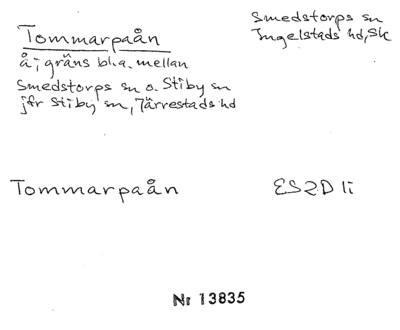 Tommarpaån
Smedstorps sn
Ingelstads hd, Sk
å; gräns bl.a. mellan
Smedstorps sn o. Stiby sn
jfr Stiby sn, Järrestads hd
Tommarpaån
ES2D 1i
Nr 13835